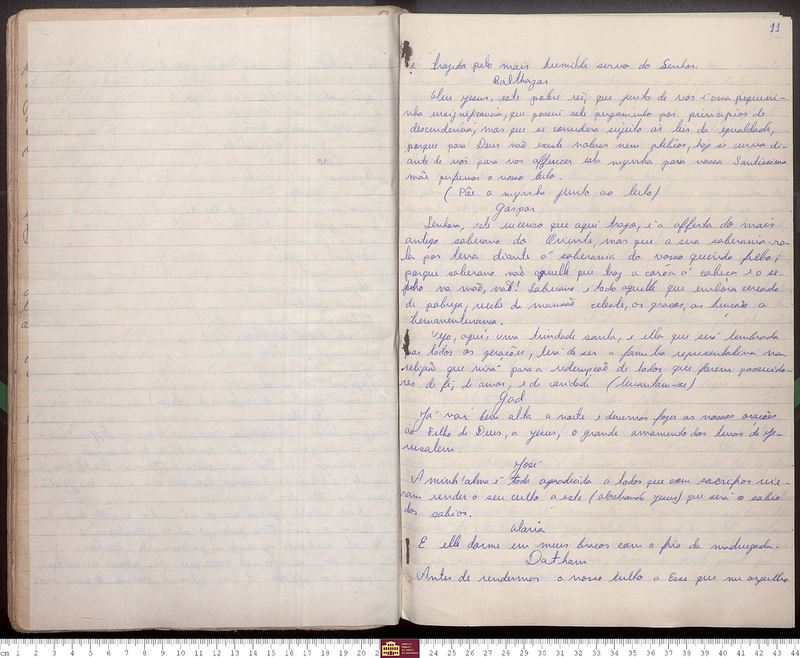 11
e trazida pelo mais humilde servo do Senhor.
Balthazar
Meu Jesus, este pobre rei, que junto de vós é uma pequeni-
nha insignificancia, que possui este pergaminho por principios de
descendencia, mas que se considera sujeito as leis da igualdade,
porque para Deus não existe nobres nem plebeus, hoje se curva di-
ante de vós para vos offerecer esta myrrha para vossa Santissima
mãe perfumar o vosso leito.
(Põe a myrrha junto ao leito)
Gaspar
Senhora, este incenso que aqui trago, é a offerta do mais
antigo soberano do Oriente, mas que a sua soberania ro-
la por terra diante á soberania do vosso querido filho;
porque soberano não aquelle que traz a corôa á cabeça e o se-
na mão, não! Soberano é todo aquelle que embora cercado
de pobreza, recebe da mansão celeste, as graças, as bençãos a
Vejo, aqui uma trindade santa, e ella que será lembrada
por todas as gerações, terá de ser a familia representativa na
religião que virá para a redempção de todos que forem possuido-
res de fé, de amor, e de caridade (levantam-se)
Gad
Já vai bem alta a noite e devemos fazer as nossas orações
ao Filho de Deus, a Jesus, o grande das terras de Je-
rusalem.
José
A minh'alma é toda agradecida a todos que com sacrificios vie-
ram render o seu culto a este ( Jesus) que será o sabio
dos sabios.
Maria
E elle dorme em meus braços com o frio da madrugada.
Dathan
Antes de rendermos o nosso culto a Esse que me orgulho
cm 1 2 3 4 5 6 7 8 9 10 11 12 13 14 15 16 17 18 19 20 2 24 25 26 27 28 29 30 31 32 33 34 35 36 37 38 39 40 41 42 43 44